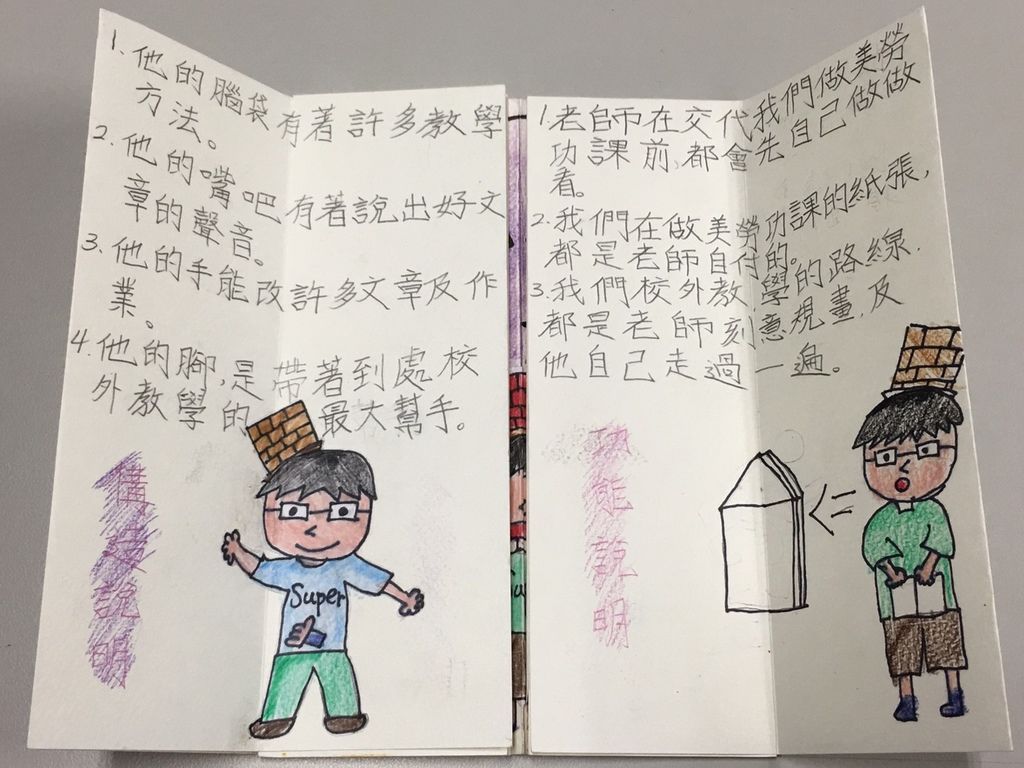 1. 他的腦袋有著許多教學
方法。
2. 他的嘴吧有著說出好文
章的聲音。
3. 他的手能改許多文章及作
業。
4. 他的腳,是帶著到處校
外教學的最大幫手。
構造說明
Super
1. 老師在交代我們做美勞
功課前,都會先自己做做
看。
2. 我們在做美勞功課的紙張,
都是老師自付的。
3. 我們校外教學的路線,
都是老師刻意規畫,及
他自己走過一遍。
功能說明